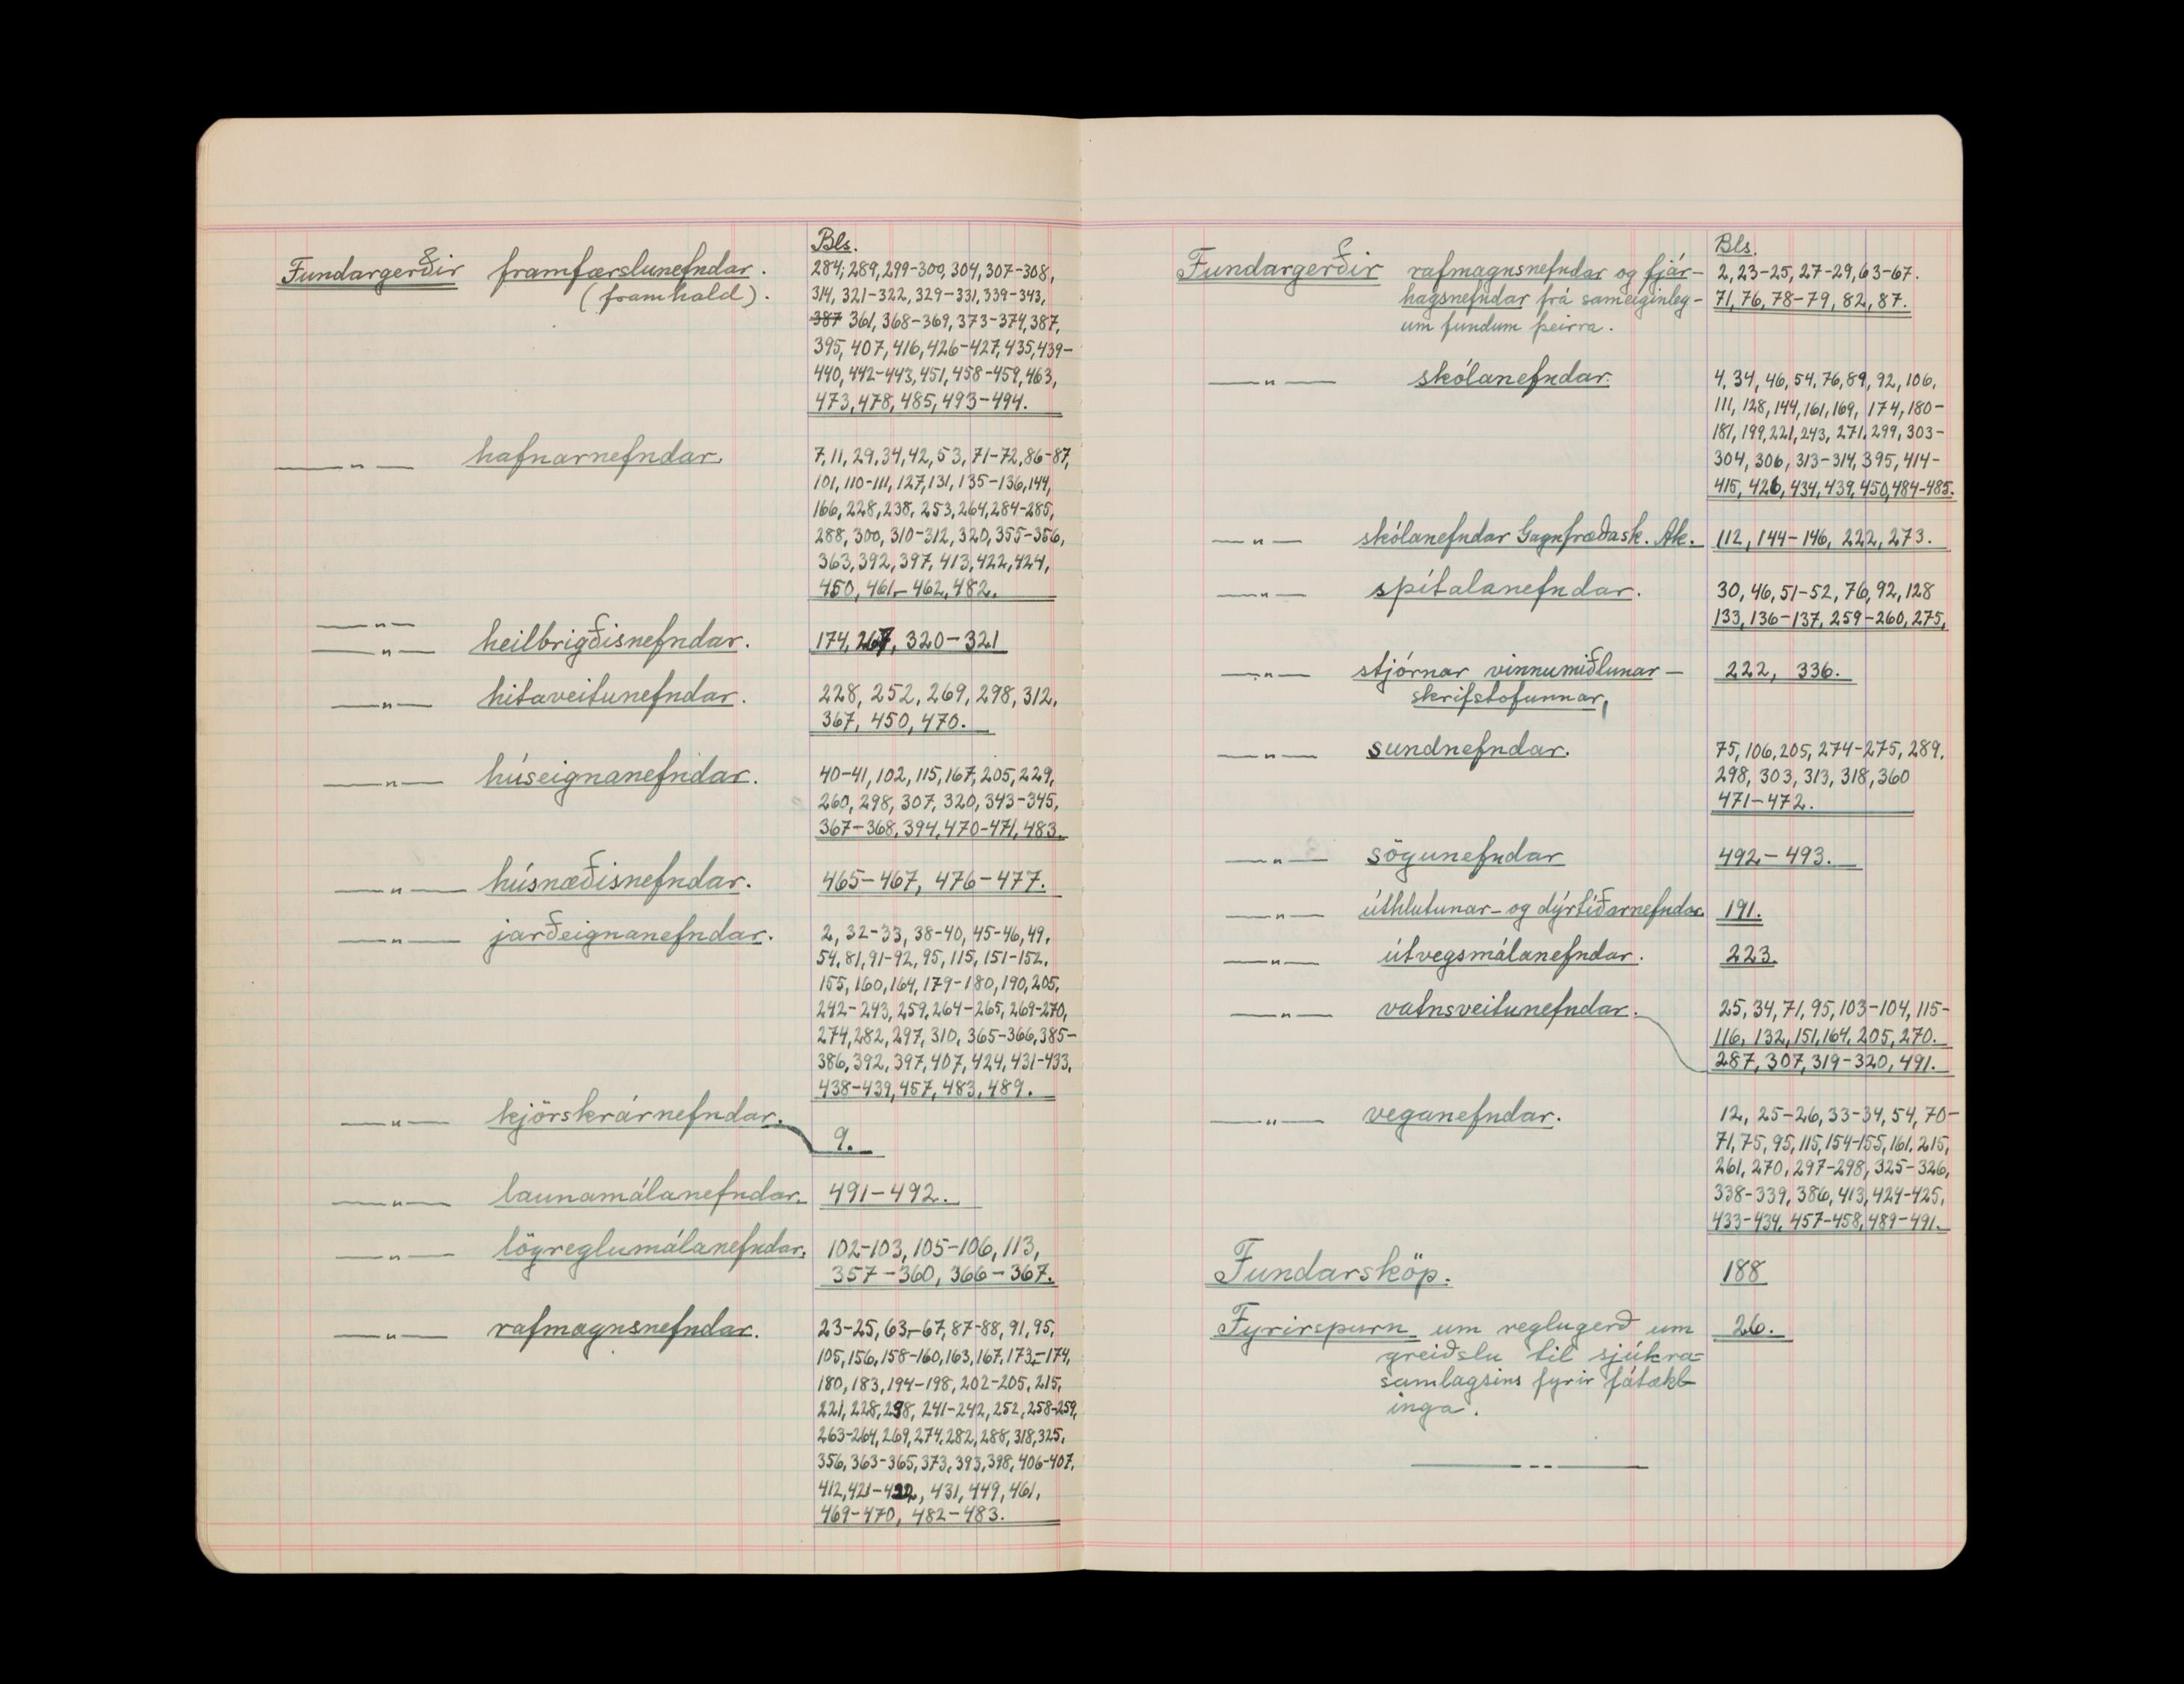 Bls.
Fundargerðir framfærslunefndar. 284, 289, 299-300, 304, 307-308,
(framhald). 314, 321-322, 329-331, 339-343,
387 361, 368-369, 373-374, 387,
395, 407, 416, 426-427, 435, 439-
440, 442-443, 451, 458-459, 463,
473, 478, 485, 493-494.
—„— hafnarnefndar. 7, 11, 29, 34, 42, 53, 71-72, 86-87,
101, 110-111, 127, 131, 135-136, 144,
166, 228, 238, 253, 264, 284-285,
288, 300, 310-312, 320, 355-356,
363, 392, 397, 413, 422, 424,
450, 461-462, 482.
—„—
—„— heilbrigðisnefndar. 174, 267, 320-321
—„— hitaveitunefndar. 228, 252, 269, 298, 312,
367, 450, 470.
—„— húseignanefndar. 40-41, 102, 115, 167, 205, 229,
260, 298, 307, 320, 343-345,
367-368, 394, 470-471, 483.
—„— húsnæðisnefndar. 465-467, 476-477.
—„— jarðeignanefndar. 2, 32-33, 38-40, 45-46, 49,
54, 81, 91-92, 95, 115, 151-152,
155, 160, 164, 179-180, 190, 205,
242-243, 259, 264-265, 269-270,
274, 282, 297, 310, 365-366, 385-
386, 392, 397, 407, 424, 431-433,
438-439, 457, 483, 489.
—„— kjörskrárnefndar. 9.
—„— launamálanefndar. 491-492.
—„— lögreglumálanefndar. 102-103, 105-106, 113,
357-360, 366-367.
—„— rafmagnsnefndar. 23-25, 63-67, 87-88, 91, 95,
105, 156, 158-160, 163, 167, 173-174,
180, 183, 194-198, 202-205, 215,
221, 228, 238, 241-242, 252, 258-259,
263-264, 269, 274, 282, 288, 318, 325,
356, 363-365, 373, 393, 398, 406-407,
412, 421-422, 431, 449, 461,
469-470, 482-483.
Bls.
Fundargerðir rafmagnsnefndar og fjár- 2, 23-25, 27-29, 63-67.
hagsnefndar frá sameiginleg- 71, 76, 78-79, 82, 87.
um fundum þeirra.
—„— skólanefndar. 4, 34, 46, 54, 76, 89, 92, 106,
111, 128, 144, 161, 169, 174, 180-
181, 199, 221, 243, 271, 299, 303-
304, 306, 313-314, 395, 414-
415, 426, 434, 439, 450, 484-485.
—„— skólanefndar Gagnfræðask. Ak. 112, 144-146, 222, 273.
—„— spítalanefndar. 30, 46, 51-52, 76, 92, 128
133, 136-137, 259-260, 275,
—„— stjórnar vinnumiðlunar- 222, 336.
skrifstofunnar,
—„— sundnefndar. 75, 106, 205, 274-275, 289,
298, 303, 313, 318, 360
471-472.
—„— sögunefndar 492-493.
—„— úthlutunar- og dýrtíðarnefndar. 191.
—„— útvegsmálanefndar. 223.
—„— vatnsveitunefndar. 25, 34, 71, 95, 103-104, 115-
116, 132, 151, 164, 205, 270.
287, 307, 319-320, 491.
—„— veganefndar. 12, 25-26, 33-34, 54, 70-
71, 75, 95, 115, 154-155, 161, 215,
261, 270, 297-298, 325-326,
338-339, 386, 413, 424-425,
433-434, 457-458, 489-491.
Fundarsköp. 188
Fyrirspurn um reglugerð um 26.
greiðslu til sjúkra=
samlagsins fyrir fátækl-
inga.